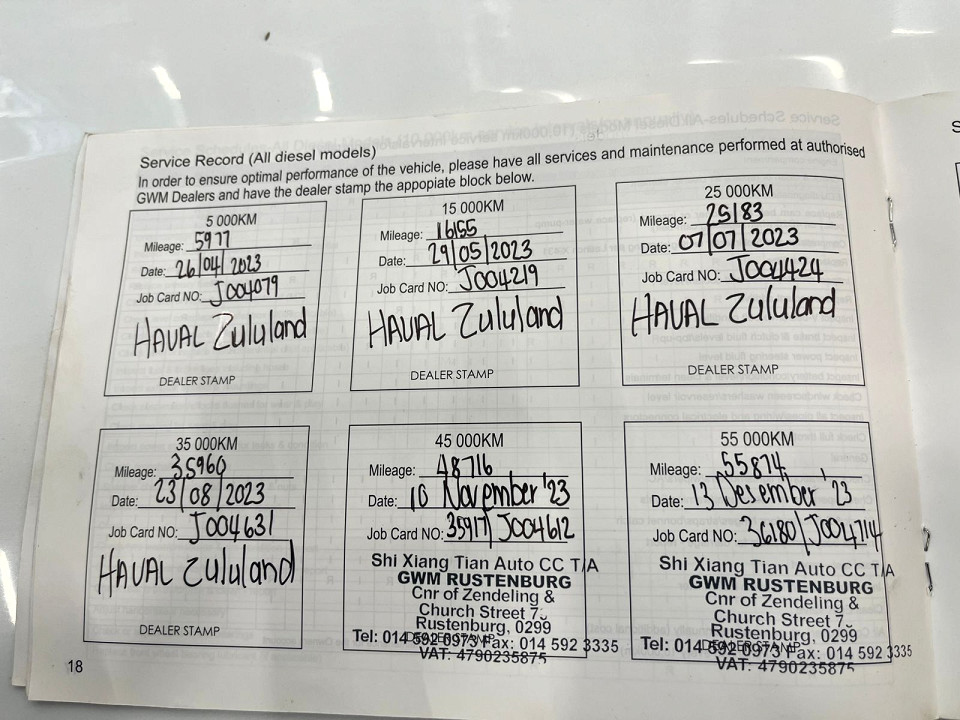 Service Record (All diesel models)
In order to ensure optimal performance of the vehicle, please have all services and maintenance performed at authorised
GWM Dealers and have the dealer stamp the appopiate block below.
5 000KM
Mileage: 5977
Date: 26/04/2023
Job Card NO: J004079
HAVAL Zululand
DEALER STAMP
15 000KM
Mileage: 16155
Date: 29/05/2023
Job Card NO: J004219
HAVAL Zululand
DEALER STAMP
25 000KM
Mileage: 25183
Date: 07/07/2023
Job Card NO: J004424
HAVAL Zululand
DEALER STAMP
35 000KM
Mileage: 35960
Date: 23/08/2023
Job Card NO: J004631
HAVAL Zululand
DEALER STAMP
45 000KM
Mileage: 48716
Date: 10 November '23
Job Card NO: 35917/J004612
Shi Xiang Tian Auto CC T/A
GWM RUSTENBURG
Cnr of Zendeling &
Church Street
Rustenburg, 0299
DEALER STAMP
Tel: 014 592 0973 Fax: 014 592 3335
VAT: 4790235875
55 000KM
Mileage: 55874
Date: 13 Desember '23
Job Card NO: 36180/J004714
Shi Xiang Tian Auto CC T/A
GWM RUSTENBURG
Cnr of Zendeling &
Church Street
Rustenburg, 0299
DEALER STAMP
Tel: 014 592 0973 Fax: 014 592 3335
VAT: 4790235875
18